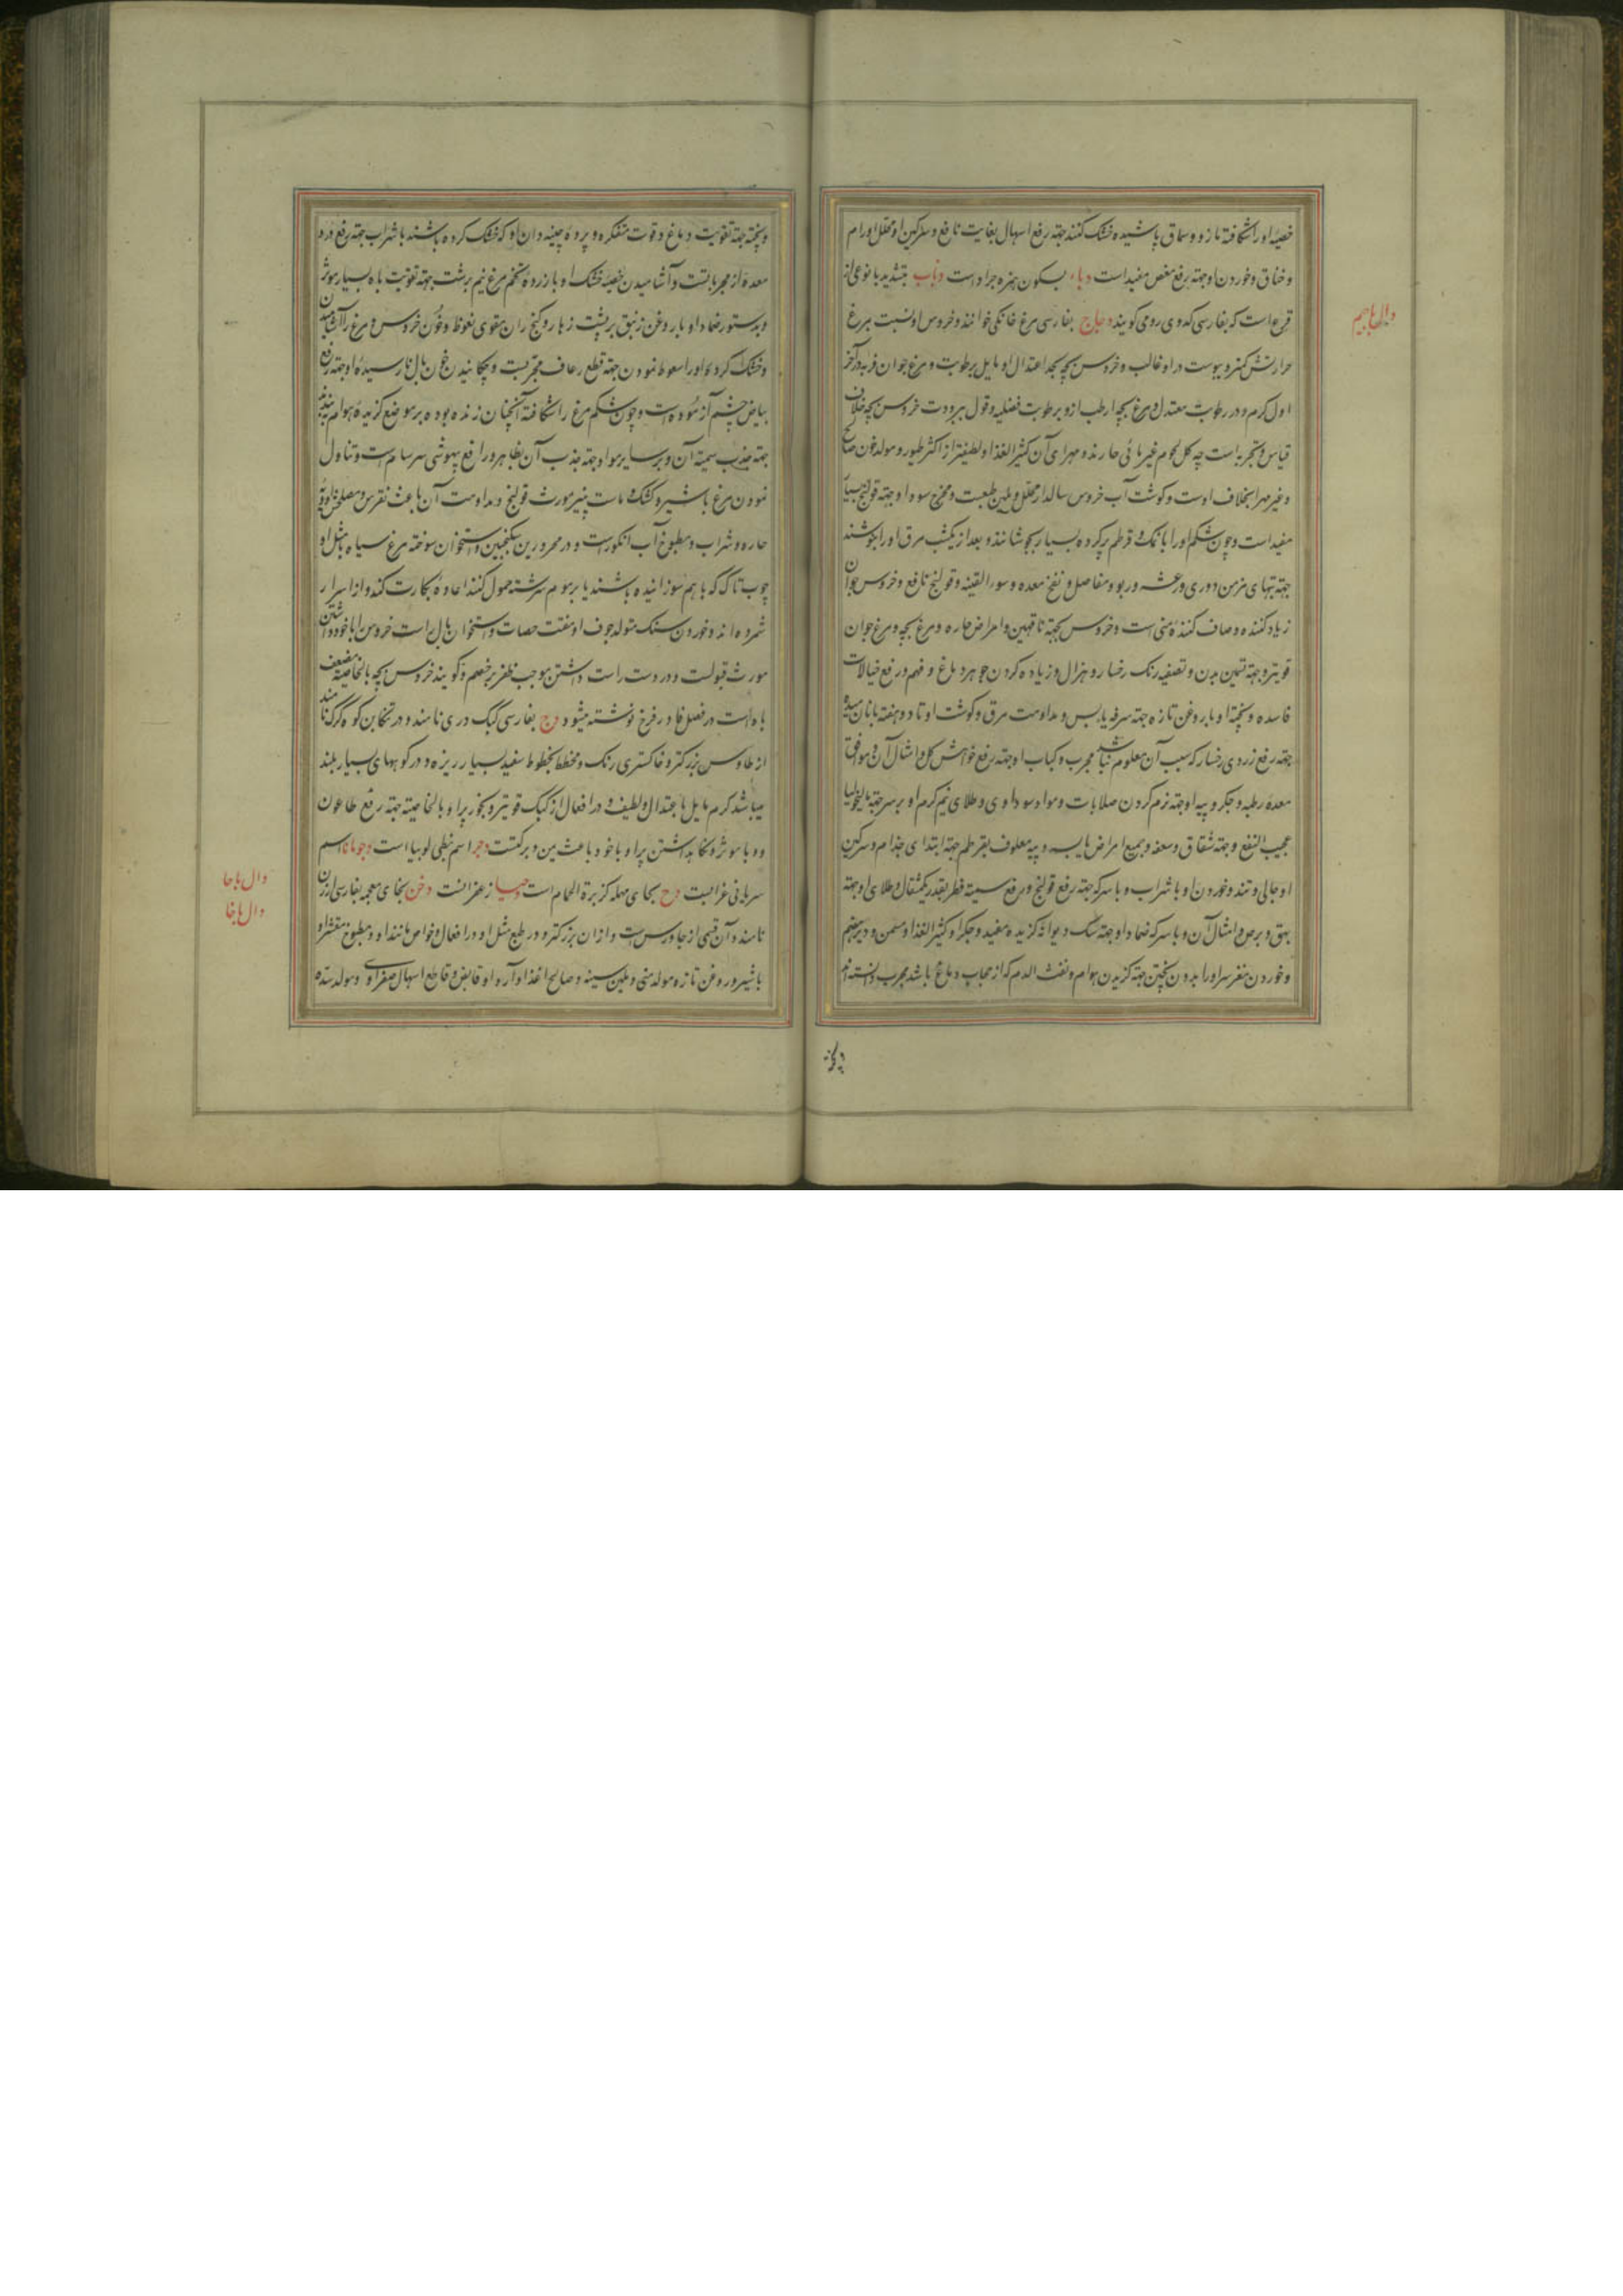 خصیهٔ او را شکافته مازو و سماق پاشیده خشک کنند جهته رفع اسهال بغایت نافع و سرکین او محلل اورام
و خناق و خوردن او جهته رفع مغص مفید است دباء بسکون همزه جراد است دباب بتشدید با نوعی از
قرع است که بفارسی کدوی رومی کویند دجاج بفارسی مرغ خانکی خوانند و خروس او نسبت بمرغ
حرارتش کمتر و یبوست در او غالب و خروس بچه بحد اعتدال و مایل برطوبت و مرغ جوان فربه در آخر
اول کرم و در رطوبت معتدل و مرغ بچه ارطب ازو برطوبت فضلیه و قول ببرودت خروس بچه خلاف
قیاس و تجربه است چه کل لحوم غیر مائی حارند و مهرای آن کثیر الغذا و لطیفتر از اکثر طیور و مولد خون صالح
و غیر مهرا بخلاف اوست و کوشت آب خروس سالدار محلل و ملین طبیعت و مخرج سودا و جهته قولنج بسیار
مفید است و چون شکم او را با نمک و قرطم پر کرده بسیار بجوشانند و بعد از یکشب مرق او را بنوشند
جهته تبهای مزمن دوری و رعشه و ربو و مفاصل و نفخ معده و سوء القنیه و قولنج نافع و خروس جوان
زیاد کننده و صاف کنندهٔ منی است و خروس بچه جهته ناقهین و امراض حاره و مرغ بچه و مرغ جوان
قویتر و جهته تسمین بدن و تصفیه رنک رخسار و هزال و زیاده کردن جوهر دماغ و فهم و رفع خیالات
فاسده و پختهٔ او با روغن تازه جهته سرفه یابس و مداومت مرق و کوشت او تا دو هفته با نان میده
جهته رفع زردی رخسار که سبب آن معلوم نباشد مجرب و کباب او جهته رفع خواهش کل و امثال آن و موافق
معدهٔ رطبه و جکر و پیه او جهته نرم کردن صلابات و مواد سوداوی و طلای نیم کرم او بر سر جهته مالیخولیا
عجیب النفع و جهته شقاق و سعفه و جمیع امراض یابسه و پیه معلوف بقرطم جهته ابتدای جذام و سرکین
او جالی و تند و خوردن او با شراب و با سرکه جهته رفع قولنج و رفع سمیته فطر بقدر یکمثقال و طلای او جهته
بهق و برص و امثال آن و با سرکه ضماد او جهته سک دیوانه کزیده مفید و جکر او کثیر الغذا و مسمن و دیر هضم
و خوردن مغز سر او را بدون پختن جهته کزیدن هوام و نفث الدم که از حجاب دماغ باشد مجرب دانسته‌اند
دال با جیم
و پخته
و پخته جهته تقویت دماغ و قوت متفکره و پردهٔ چینه‌دان او که خشک کرده باشند با شراب جهته رفع درد
معده از مجرباتست و آشامیدن خصیهٔ خشک او با زردهٔ تخم مرغ نیم برشت جهته تقویت باه بسیار موثر
و بدستور ضماد او با روغن زنبق بر پشت زهار و کنج ران مقوی نعوظ و خون خروس و مرغ را آشامیدن
و خشک کردهٔ او را سعوط نمودن جهته قطع رعاف مجربست و چکانیدن خون بال نارسیدهٔ او جهته رفع
بیاض چشم آزموده است و چون شکم مرغ را شکافته آنچنان زنده بوده بر موضع کزیدهٔ هوام بندند
جهته جذب سمیته آن و بر سایر مواد جهته جذب آن بظاهر و رافع بیهوشی سرسام است و تناول
نمودن مرغ با شیر و کشک و ماست پنیر مورث قولنج و مداومت آن باعث نقرس و مصلحش ادویه
حاره و شراب و مطبوخ آب انکور است و در محرورین سکنجبین و استخوان سوخته مرغ سیاه با مثل او
چوب تاک که با هم سوزانیده باشند یا بر موم سرشته حمول کنند اعادهٔ بکارت کند و از اسرار
شمرده‌اند و خوردن سنک متولد جوف او مفتت حصات و استخوان بال راست خروس را با خود داشتن
مورث قبولست و در دست راست داشتن موجب ظفر بر خصم و کویند خروس بچه بالخاصیته مضعف
باه است در فصل فا در فرخ نوشته میشود دج بفارسی کبک دری نامند و در تنکابن کوه کرک نامند
از طاوس بزرکتر و خاکستری رنک و مخطط بخطوط سفید بسیار ریزه و در کوههای بسیار بلند
میباشد کرم مایل باعتدال و لطیف و در افعال از کبک قویتر و بخور پر او بالخاصیته جهته رفع طاعون
و وبا موثر و نکاهداشتن پر او با خود باعث یمن و برکتست دجر اسم نبطی لوبیا است دجومانا اسم
سریانی غرابست دح بحای مهمله کزبرة الحمام است دحیسا زعفرانست دخن بخای معجمه بفارسی ارزن
نامند و آن قسمی از جاورس است و از آن بزرکتر و در طبع مثل او و در افعال و خواص مانند او و مطبوخ مقشر او
با شیر و روغن تازه مولد منی و ملین سینه و صالح الغذا و آرد او قابض و قاطع اسهال صفراوی و مولد سده
دال با حا
دال با خا